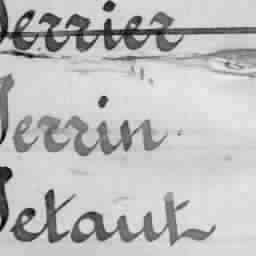 Perrier
Perrin
Petaut